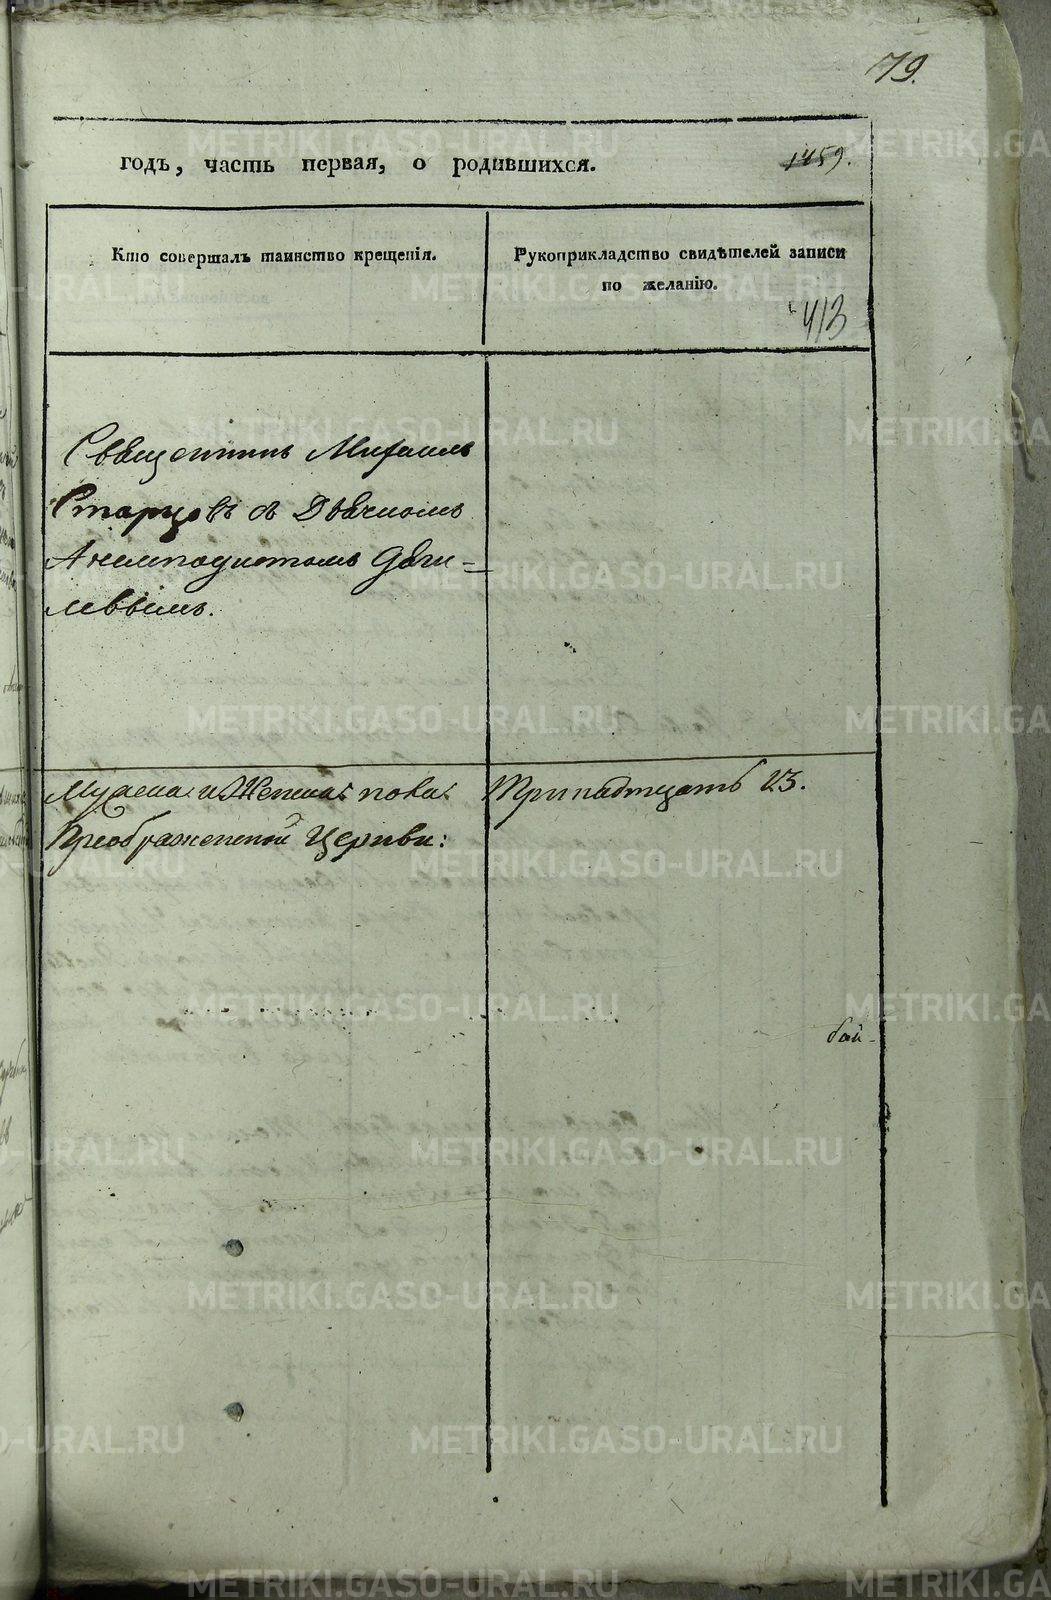 79.
годъ, часть первая, о родившихся. 1459.
Кто совершалъ таинство крещенія.
Рукоприкладство свидѣтелей записи
по желанію.
413
Священникъ Михаилъ
Старцовъ съ Дьячкомъ
Анемподистомъ
левымъ.
Мужеска: и Женска: пола: Тринадцать 13.
Преображенской Церкви:
METRIKI.GASO-URAL.RU